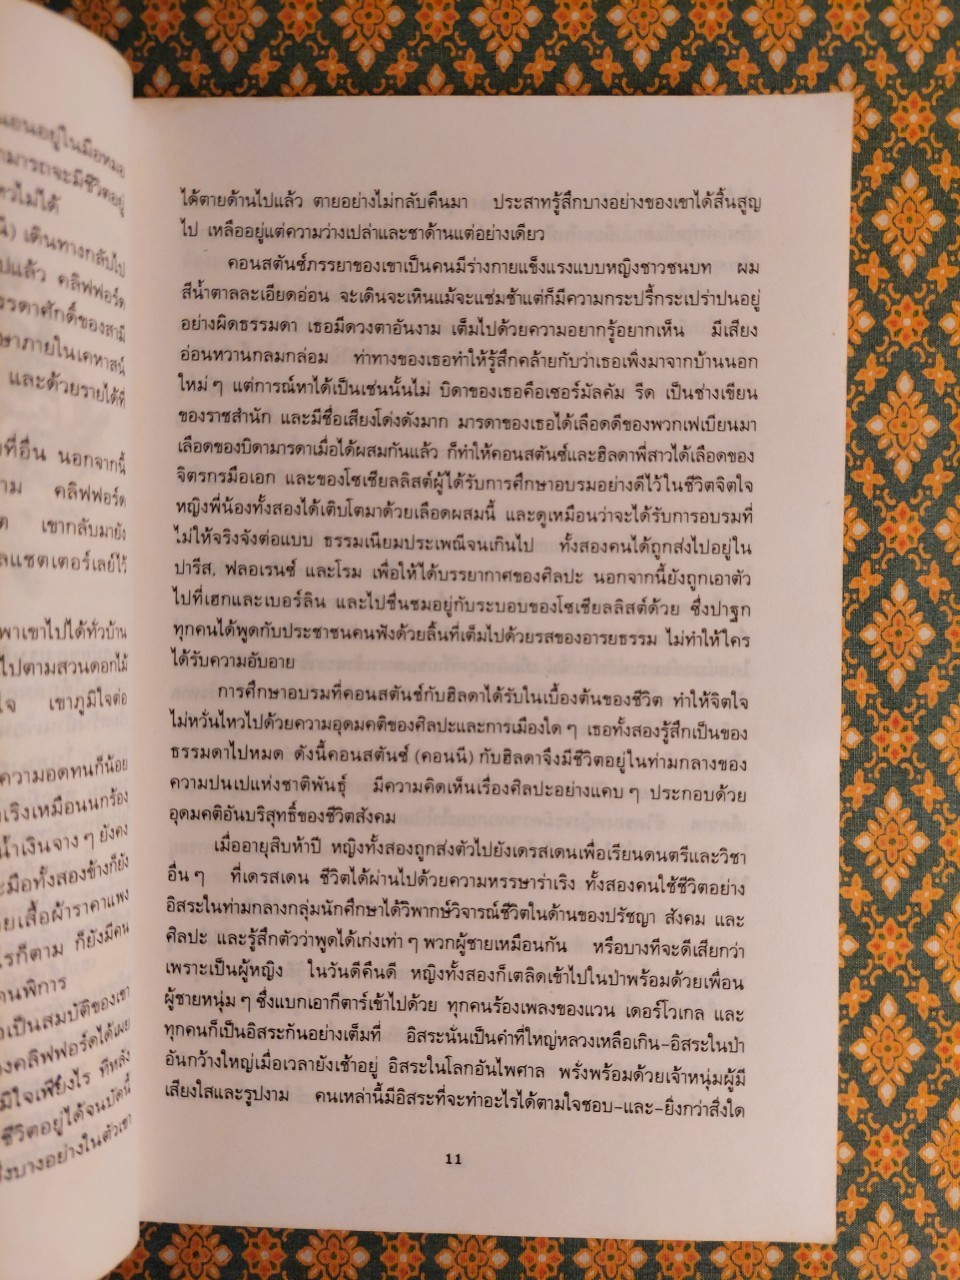 นอนอยู่ในมือหมอ
ามารถจะมีชีวิตอยู่
หวไม่ได้
นี) เดินทางกลับไป
ปแล้ว คลิฟฟอร์ด
รรดาศักดิ์ของสามี
ษาภายในเคหาสน์
และด้วยรายได้ที่
ที่อื่น นอกจากนี้
าม คลิฟฟอร์ด
ต เขากลับมายัง
ลแชตเตอร์เลย์ไว้
พาเขาไปได้ทั่วบ้าน
ไปตามสวนดอกไม้
ใจ เขาภูมิใจต่อ
ความอดทนก็น้อย
าเริงเหมือนนกร้อง
น้ำเงินจางๆ ยังคง
ะมือทั้งสองข้างก็ยัง
ยเสื้อผ้าราคาแพง
ไรก็ตาม ก็ยังมีคน
นพิการ
อเป็นสมบัติของเขา
องคลิฟฟอร์ดได้เผย
มิใจเพียงไร ที่หลัง
ชีวิตอยู่ได้จนบัดนี้
งบางอย่างในตัวเขา
ได้ตายด้านไปแล้ว ตายอย่างไม่กลับคืนมา ประสาทรู้สึกบางอย่างของเขาได้สิ้นสูญ
ไป เหลืออยู่แต่ความว่างเปล่าและชาด้านแต่อย่างเดียว
คอนสตันซ์ภรรยาของเขาเป็นคนมีร่างกายแข็งแรงแบบหญิงชาวชนบท ผม
สีน้ำตาลละเอียดอ่อน จะเดินจะเหินแม้จะแช่มช้าแต่ก็มีความกระปรี้กระเปร่าปนอยู่
อย่างผิดธรรมดา เธอมีดวงตาอันงาม เต็มไปด้วยความอยากรู้อยากเห็น มีเสียง
อ่อนหวานกลมกล่อม ท่าทางของเธอทำให้รู้สึกคล้ายกับว่าเธอเพิ่งมาจากบ้านนอก
ใหม่ๆ แต่การณ์หาได้เป็นเช่นนั้นไม่ บิดาของเธอคือเซอร์มัลคัม รีด เป็นช่างเขียน
ของราชสำนัก และมีชื่อเสียงโด่งดังมาก มารดาของเธอได้เลือดดีของพวกเฟเบียนมา
เลือดของบิดามารดาเมื่อได้ผสมกันแล้ว ก็ทำให้คอนสตันซ์และฮิลดาพี่สาวได้เลือดของ
จิตรกรมือเอก และของโซเชียลลิสต์ผู้ได้รับการศึกษาอบรมอย่างดีไว้ในชีวิตจิตใจ
หญิงพี่น้องทั้งสองได้เติบโตมาด้วยเลือดผสมนี้ และดูเหมือนว่าจะได้รับการอบรมที่
ไม่ให้จริงจังต่อแบบ ธรรมเนียมประเพณีจนเกินไป ทั้งสองคนได้ถูกส่งไปอยู่ใน
ปารีส, ฟลอเรนซ์ และโรม เพื่อให้ได้บรรยากาศของศิลปะ นอกจากนี้ยังถูกเอาตัว
ไปที่เฮกและเบอร์ลิน และไปชื่นชมอยู่กับระบอบของโซเชียลลิสต์ด้วย ซึ่งปาฐก
ทุกคนได้พูดกับประชาชนคนฟังด้วยลิ้นที่เต็มไปด้วยรสของอารยธรรม ไม่ทำให้ใคร
ได้รับความอับอาย
การศึกษาอบรมที่คอนสตันซ์กับฮิลดาได้รับในเบื้องต้นของชีวิต ทำให้จิตใจ
ไม่หวั่นไหวไปด้วยความอุดมคติของศิลปะและการเมืองใดๆ เธอทั้งสองรู้สึกเป็นของ
ธรรมดาไปหมด ดังนี้คอนสตันซ์ (คอนนี) กับฮิลดาจึงมีชีวิตอยู่ในท่ามกลางของ
ความปนเปแห่งชาติพันธุ์ มีความคิดเห็นเรื่องศิลปะอย่างแคบๆ ประกอบด้วย
อุดมคติอันบริสุทธิ์ของชีวิตสังคม
เมื่ออายุสิบห้าปี หญิงทั้งสองถูกส่งตัวไปยังเดรสเดนเพื่อเรียนดนตรีและวิชา
อื่นๆ ที่เดรสเดน ชีวิตได้ผ่านไปด้วยความหรรษาร่าเริง ทั้งสองคนใช้ชีวิตอย่าง
อิสระในท่ามกลางกลุ่มนักศึกษาได้วิพากษ์วิจารณ์ชีวิตในด้านของปรัชญา สังคม และ
ศิลปะ และรู้สึกตัวว่าพูดได้เก่งเท่าๆ พวกผู้ชายเหมือนกัน หรือบางทีจะดีเสียกว่า
เพราะเป็นผู้หญิง ในวันดีคืนดี หญิงทั้งสองก็เตลิดเข้าไปในป่าพร้อมด้วยเพื่อน
ผู้ชายหนุ่มๆ ซึ่งแบกเอากีตาร์เข้าไปด้วย ทุกคนร้องเพลงของแวน เดอร์โวเกล และ
ทุกคนก็เป็นอิสระกันอย่างเต็มที่ อิสระนั่นเป็นคำที่ใหญ่หลวงเหลือเกิน-อิสระในป่า
อันกว้างใหญ่เมื่อเวลายังเช้าอยู่ อิสระในโลกอันไพศาล พรั่งพร้อมด้วยเจ้าหนุ่มผู้มี
เสียงใสและรูปงาม คนเหล่านี้มีอิสระที่จะทำอะไรได้ตามใจชอบ-และ-ยิ่งกว่าสิ่งใด
11